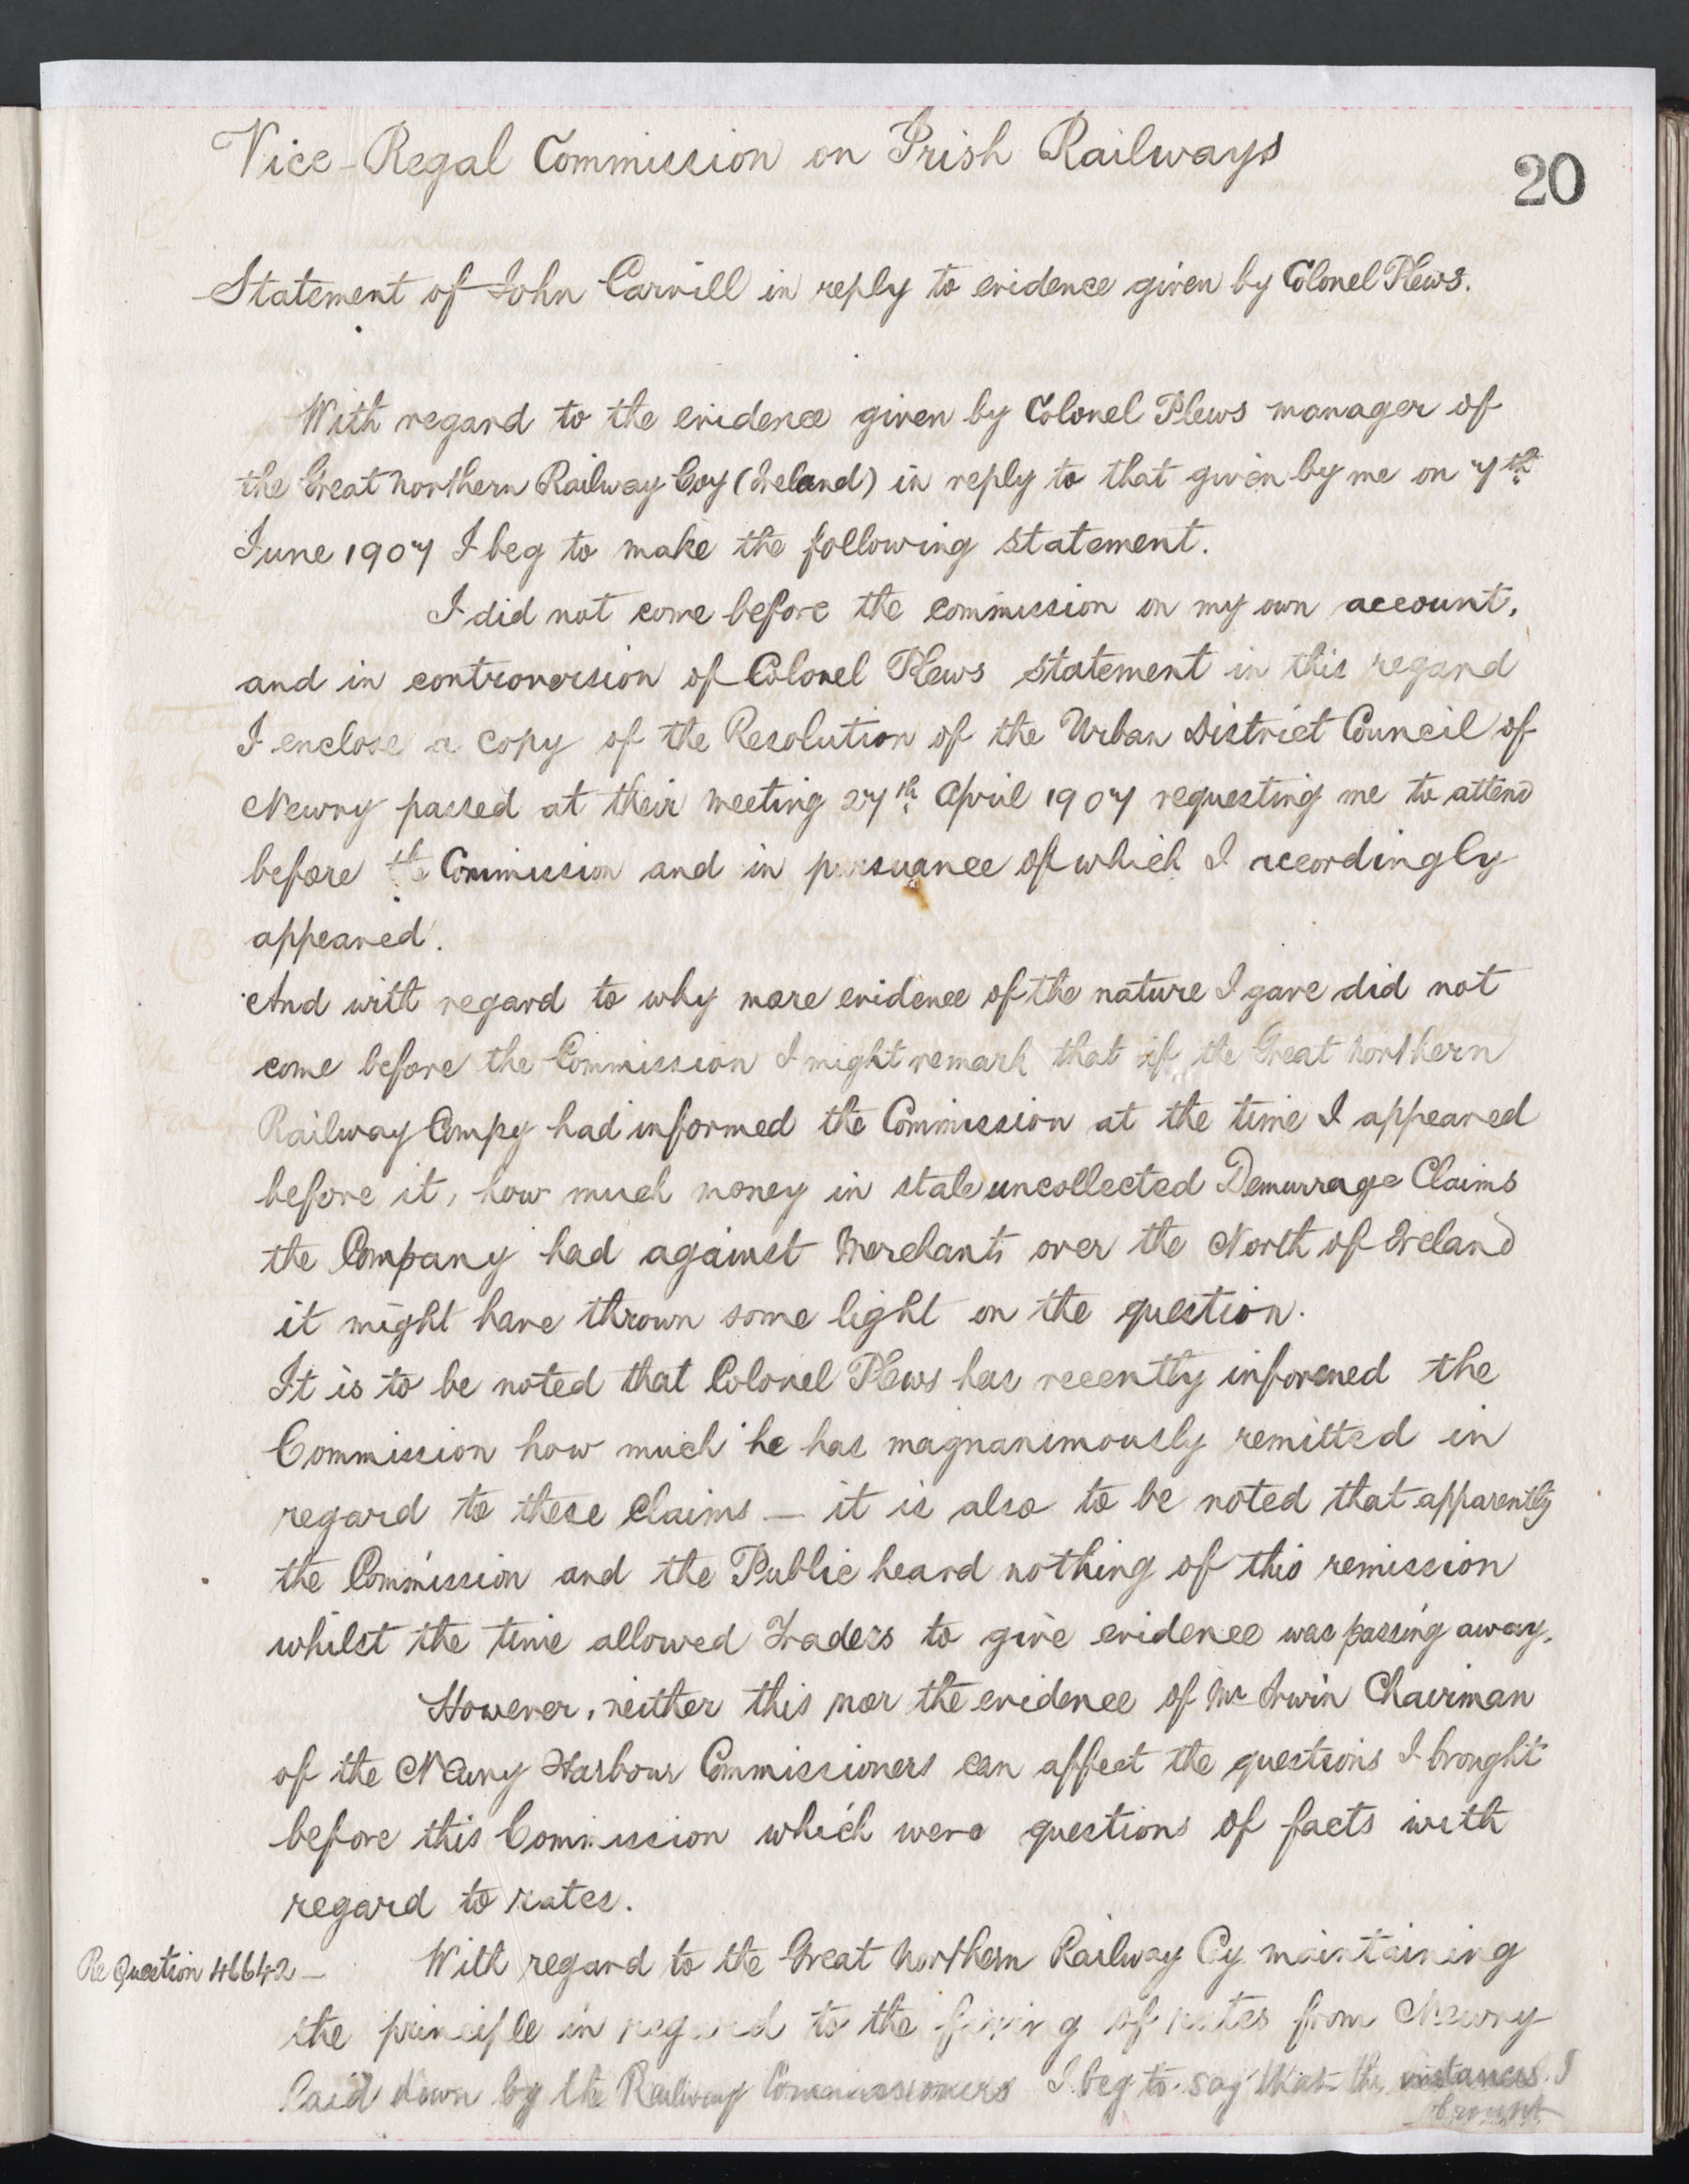 Vice-Regal Commission on Irish Railways
20
Statement of John Carvill in reply to evidence given by Colonel Plews.
With regard to the evidence given by Colonel Plews manager of
the Great Northern Railway Coy (Ireland) in reply to that given by me on 7th
June 1907 I beg to make the following statement.
I did not come before the commission on my own account,
and in controversion of Colonel Plews statement in this regard
I enclose a copy of the Resolution of the Urban District Council of
Newry passed at their meeting 27th April 1907 requesting me to attend
before the Commission and in pursuance of which I accordingly
appeared.
And with regard to why more evidence of the nature I gave did not
come before the Commission I might remark that if the Great Northern
Railway Compy had informed the Commission at the time I appeared
before it, how much money in stale uncollected Demurrage Claims
the Company had against Merchants over the North of Ireland
it might have thrown some light on the question.
It is to be noted that Colonel Plews has recently informed the
Commission how much he has magnanimously remitted in
regard to these claims — it is also to be noted that apparently
the Commission and the Public heard nothing of this remission
whilst the time allowed Traders to give evidence was passing away.
However, neither this nor the evidence of Mr Irwin Chairman
of the Newry Harbour Commissioners can affect the questions I brought
before this Commission which were questions of facts with
regard to rates.
Re Question 46642 — With regard to the Great Northern Railway Cy maintaining
the principle in regard to the fixing of rates from Newry
laid down by the Railway Commissioners I beg to say that the instances I
brought